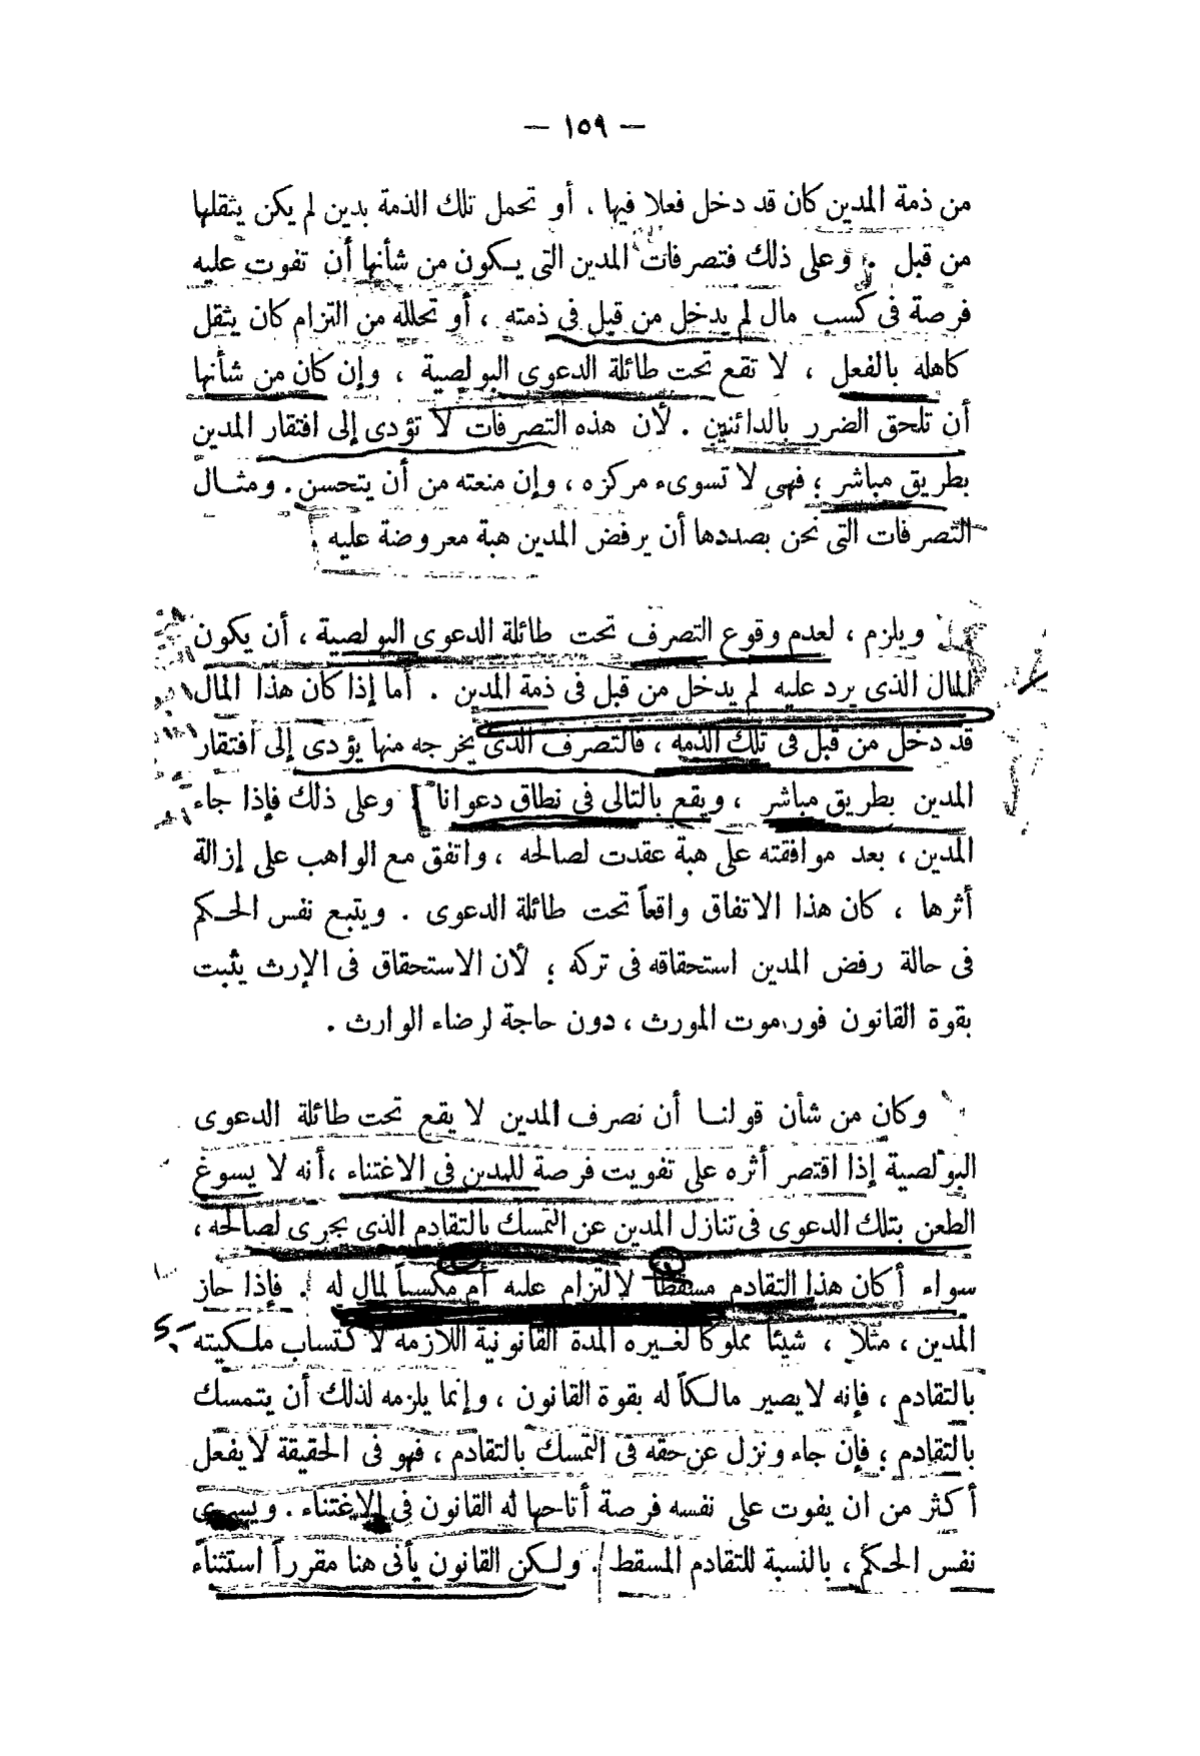 — ١٥٩ —
من ذمة المدين كان قد دخل فعلا فيها ، أو تحمل تلك الذمة بدين لم يكن يثقلها
من قبل . وعلى ذلك فتصرفات المدين التى يكون من شأنها أن تفوت عليه
فرصة فى كسب مال لم يدخل من قبل فى ذمته ، أو تحلله من التزام كان يثقل
كاهله بالفعل ، لا تقع تحت طائلة الدعوى البولصية ، وإن كان من شأنها
أن تلحق الضرر بالدائنين . لأن هذه التصرفات لا تؤدى إلى افتقار المدين
بطريق مباشر ؛ فهى لا تسوىء مركزه ، وإن منعته من أن يتحسن . ومثال
التصرفات التى نحن بصددها أن يرفض المدين هبة معروضة عليه .
ويلزم ، لعدم وقوع التصرف تحت طائلة الدعوى البولصية ، أن يكون
المال الذى يرد عليه لم يدخل من قبل فى ذمة المدين . أما إذا كان هذا المال
قد دخل من قبل فى تلك الذمه ، فالتصرف الذى يخرجه منها يؤدى إلى افتقار
المدين بطريق مباشر ، ويقع بالتالى فى نطاق دعوانا ] وعلى ذلك فإذا جاء
المدين ، بعد موافقته على هبة عقدت لصالحه ، واتفق مع الواهب على إزالة
أثرها ، كان هذا الاتفاق واقعاً تحت طائلة الدعوى . ويتبع نفس الحكم
فى حالة رفض المدين استحقاقه فى تركه ؛ لأن الاستحقاق فى الإرث يثبت
بقوة القانون فور موت المورث ، دون حاجة لرضاء الوارث .
وكان من شأن قولنا أن نصرف المدين لا يقع تحت طائلة الدعوى
البولصية إذا اقتصر أثره على تفويت فرصة للمدين فى الاغتناء ، أنه لا يسوغ
الطعن بتلك الدعوى فى تنازل المدين عن التمسك بالتقادم الذى يجرى لصالحه ،
سواء أكان هذا التقادم مسقطاً لالتزام عليه أم مكسباً لمال له . فإذا حاز
المدين ، مثلا ، شيئا مملوكا لغيره المدة القانونية اللازمه لاكتساب ملكيته
بالتقادم ، فإنه لا يصير مالكاً له بقوة القانون ، وإنما يلزمه لذلك أن يتمسك
بالتقادم ؛ فإن جاء ونزل عن حقه فى التمسك بالتقادم ، فهو فى الحقيقة لا يفعل
أكثر من ان يفوت على نفسه فرصة أتاحها له القانون فى الاغتناء . ويسرى
نفس الحكم ، بالنسبة للتقادم المسقط . ولكن القانون يأتى هنا مقرراً استثناء